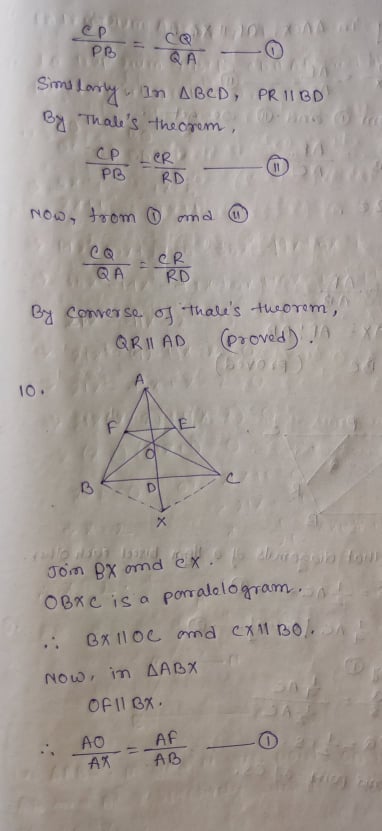 CP/PB = CQ/QA — I
Similarly, In ΔBCD, PR || BD
By Thale's theorem,
CP/PB = CR/RD — II
Now, from I and II
CQ/QA = CR/RD
By Converse of Thale's theorem,
QR || AD (proved).
10.
A
F E
O
B D C
X
Join BX and CX.
OBXC is a parralelogram.
∴ BX || OC and CX || BO.
Now, in ΔABX
OF || BX.
∴ AO/AX = AF/AB — I